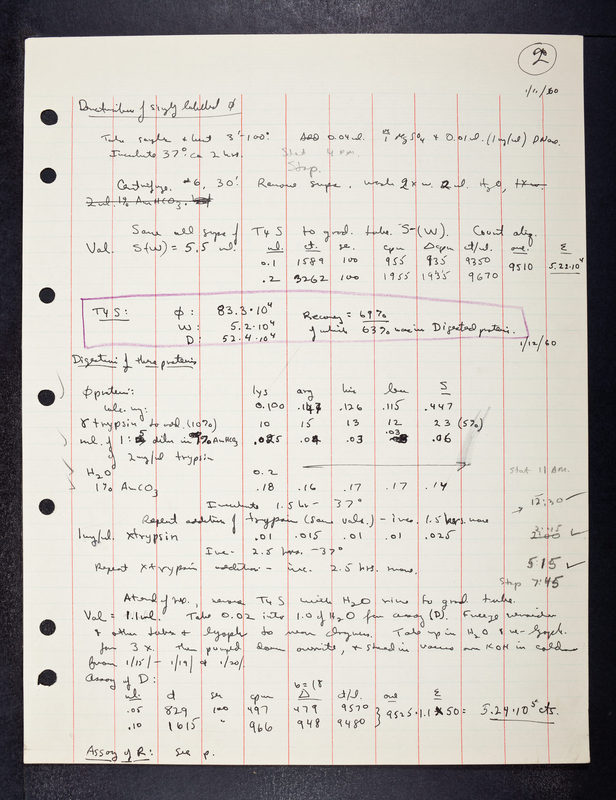 2
1/11/60
of singly labelled φ
Take sample & heat 3'-100°. ADD 0.04 ml. MgSO4 & 0.01 ml. (1 mg/ml) DNase.
Incubate 37° ca 2 hrs. Start 4 PM.
Stop.
Centrifuge, #6, 30'. Remove supe, wash 2x w. 2 ml. H2O,
2 ml. 1%
Save all supes of T4S to grad. tube. S-(W). Count aliq.
Vol. S(W) = 5.5 ml. ml. ct. sec. cpm Δcpm ct/ml. ave. Σ
0.1 1589 100 955 935 9350
9510 5.22·10⁴
.2 3262 100 1955 1935 9670
T4S: φ: 83.3·10⁴ Recovery = 69%
W: 5.2·10⁴ of which 63% was in Digested protein.
D: 52.4·10⁴
1/12/60
Digestion of these proteins
φ protein: lys arg his leu S
mg: 0.100 .147 .126 .115 .447
γ trypsin to vol. (10%) 10 15 13 12 23 (5%)
ml. of 1:5 diln in 1% AmHCO3 .025 .04 .03 .03 .06
of 2 mg/ml trypsin
H2O 0.2
Start 11 AM.
1% AmCO3 .18 .16 .17 .17 .14
Incubate 1.5 hr - 37°
12:30
Repeat addition of trypsin (same vols.) - inc. 1.5 hrs. more
1 mg/ml. Xtrypsin .01 .015 .01 .01 .025
Inc - 2.5 hrs. - 37°
Repeat Xtrypsin addition - inc. 2.5 hrs. more.
5:15
Stop 7:45
At end of , remove T4S with H2O rinse to grad tube.
Vol = 1.1 ml. Take 0.02 into 1.0 of H2O for assay (D). Freeze remainder
& other tubes & lyoph to near dryness. Take up in H2O & re-lyoph.
for 3x. then pumped down overnite, & stored in vacuo over KOH in cold
from 1/15/- 1/19/ & 1/20/.
Assay of D:
b=18
ml. ct sec cpm Δ ct/ml. ave Σ
.05 829 100 497 479 9570
9525·1.1 x 50 = 5.24·10⁵ cts.
.10 1615 " 966 948 9480
Assay of R: see p.